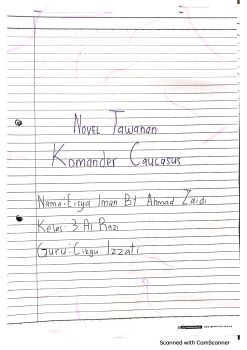 Novel Tawanan
Komander Caucasus
Nama: Eisya Iman Bt Ahmad Zaidi
Kelas: 3 Al Razi
Guru: Cikgu Izzati
Scanned with CamScanner